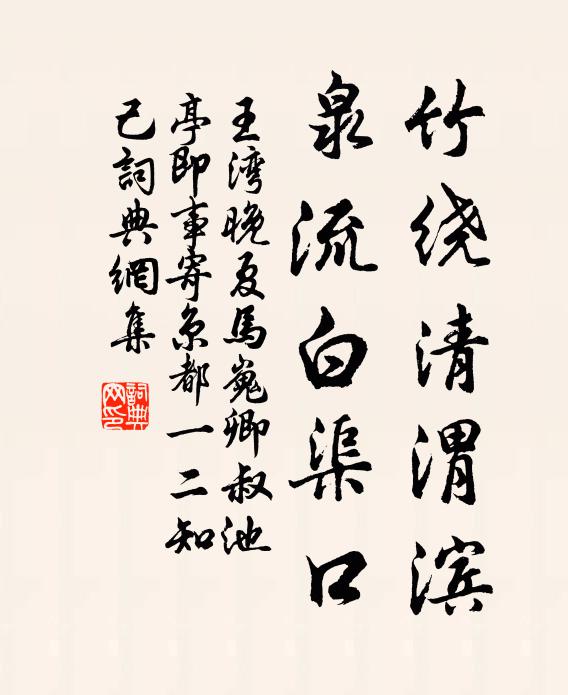 竹绕清渭滨
泉流白渠口
王湾晚夏馬嵬卿叔池
亭即事寄京都一二知
己詞典網集
詞典
网印